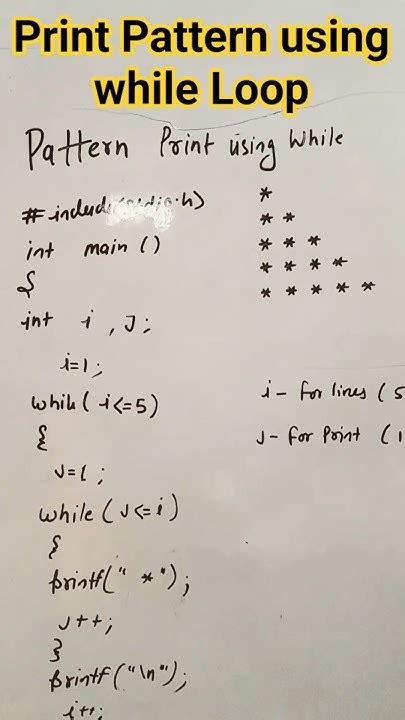 Print Pattern using
while Loop
Pattern Print using While
#include<stdio.h>
int main ()
{
int i , J ;
i=1 ;
while( i<=5)
{
J=1 ;
while ( J<= i )
{
printf(" *");
J++;
}
printf("\n");
i++;
*
* *
* * *
* * * *
* * * * *
i - for lines ( 5
J - for Print ( 1